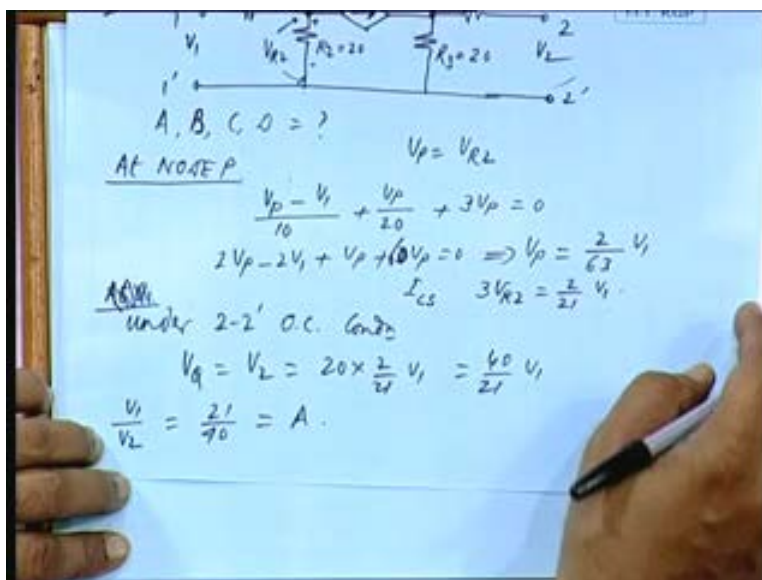 1 2
V1 VR2 R2=20 R3=20 V2
1' 2'
A, B, C, D = ?
At NODE P VP = VR2
VP - V1 / 10 + VP / 20 + 3VP = 0
2VP - 2V1 + VP + 60VP = 0 => VP = 2/63 V1
ICS 3VR2 = 2/21 V1.
under 2-2' O.C. Condn
VQ = V2 = 20 × 2/21 V1 = 40/21 V1
V1/V2 = 21/40 = A.